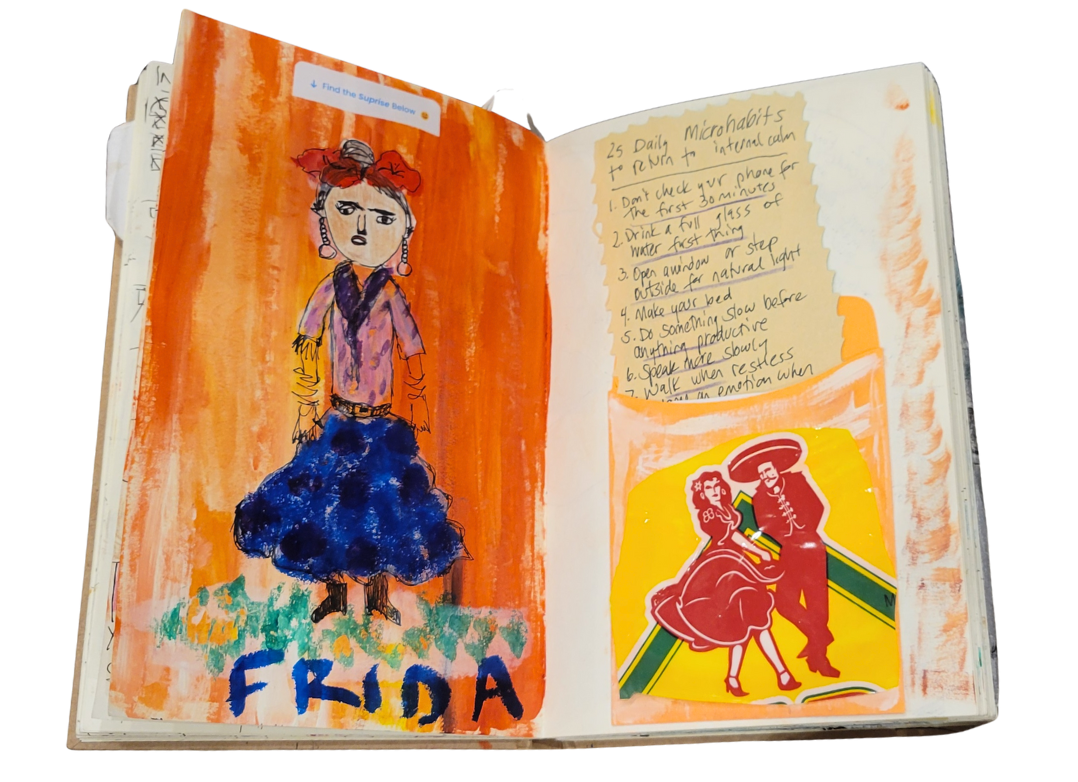 ↓ Find the Suprise Below
FRIDA
25 Daily Microhabits
to return to internal calm
1. Don't check your phone for
the first 30 minutes
2. Drink a full glass of
water first thing
3. Open a window or step
outside for natural light
4. Make your bed
5. Do something slow before
anything productive
6. Speak more slowly
7. Walk when restless
an emotion when